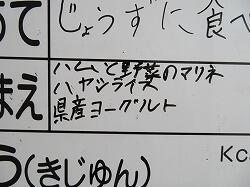 あて
じょうずに食べ
まえ
ハムと野菜のマリネ
ハヤシライス
県産ヨーグルト
う(きじゅん)
Kc